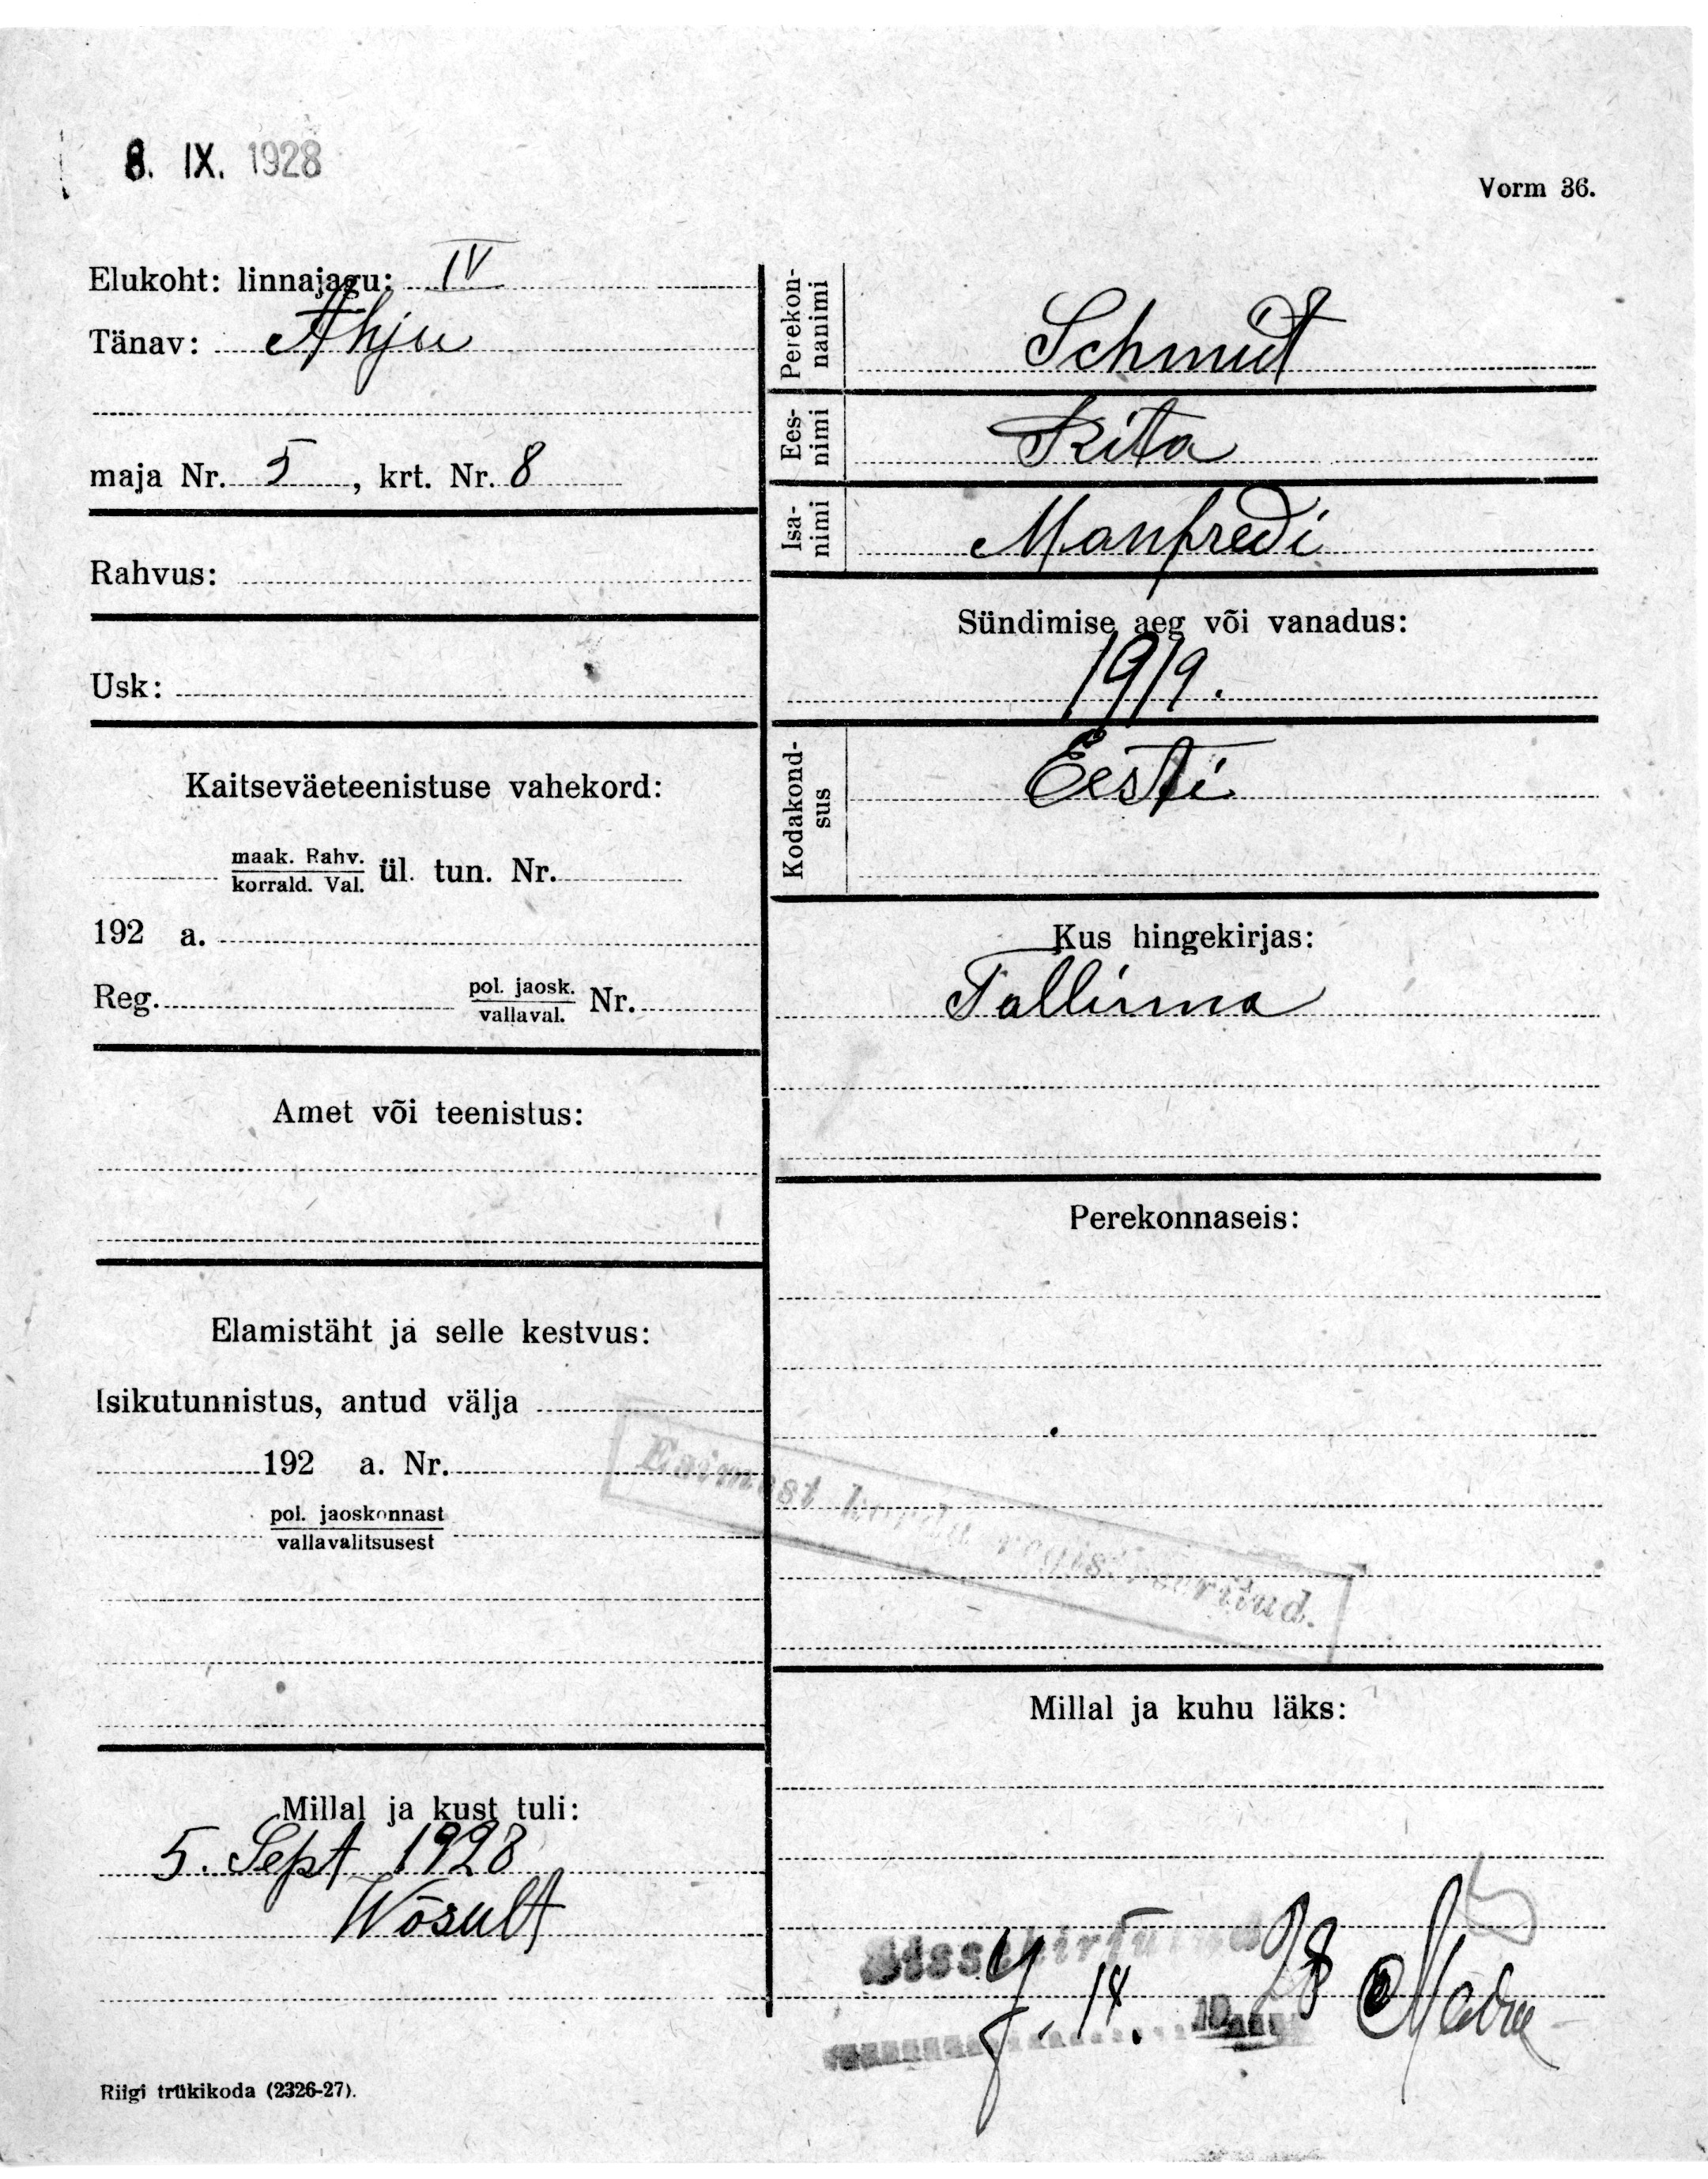 8. IX. 1928
Vorm 36.
Elukoht: linnajagu: IV
Tänav: Ahju
maja Nr. 5, krt. Nr. 8
Rahvus:
Usk:
Kaitseväeteenistuse vahekord:
maak. Rahv.
korrald. Val. ül. tun. Nr.
192 a.
Reg. pol. jaosk.
vallaval. Nr.
Amet või teenistus:
Elamistäht ja selle kestvus:
Isikutunnistus, antud välja
192 a. Nr.
pol. jaoskonnast
vallavalitsusest
Millal ja kust tuli:
5. Sept 1928
Wõsult
Riigi trükikoda (2326-27).
Perekon-
nanimi
Schmidt
Ees-
nimi
Rita
Isa-
nimi
Manfredi
Sündimise aeg või vanadus:
1919.
Kodakond-
sus
Eesti
Kus hingekirjas:
Tallinna
Perekonnaseis:
Esimest korda registreeritud.
Millal ja kuhu läks:
Sissekirjutud
28